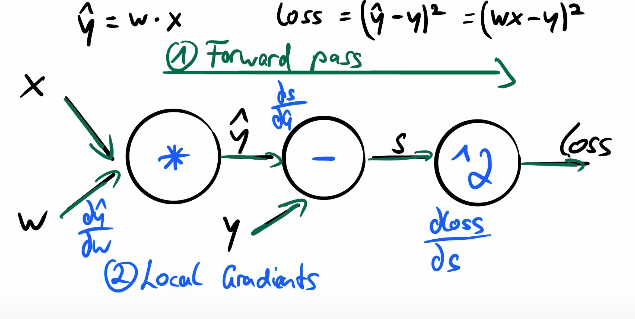 ŷ = w · x
loss = (ŷ - y)² = (wx - y)²
① Forward pass
x
w
*
dŷ/dw
ŷ
ds/dŷ
-
y
s
^2
dloss/ds
loss
② Local Gradients